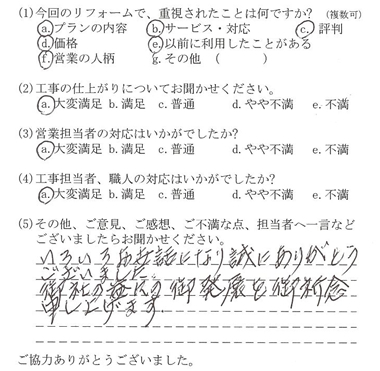 (1)今回のリフォームで、重視されたことは何ですか? (複数可)
a.プランの内容 b.サービス・対応 c.評判
d.価格 e.以前に利用したことがある
f.営業の人柄 g.その他 ( )
(2)工事の仕上がりについてお聞かせください。
a.大変満足 b.満足 c.普通 d.やや不満 e.不満
(3)営業担当者の対応はいかがでしたか?
a.大変満足 b.満足 c.普通 d.やや不満 e.不満
(4)工事担当者、職人の対応はいかがでしたか?
a.大変満足 b.満足 c.普通 d.やや不満 e.不満
(5)その他、ご意見、ご感想、ご不満な点、担当者へ一言など
ございましたらお聞かせください。
いろいろお世話になり誠にありがとう
ございました
御社の益々の御発展を御祈念
申し上げます.
ご協力ありがとうございました。